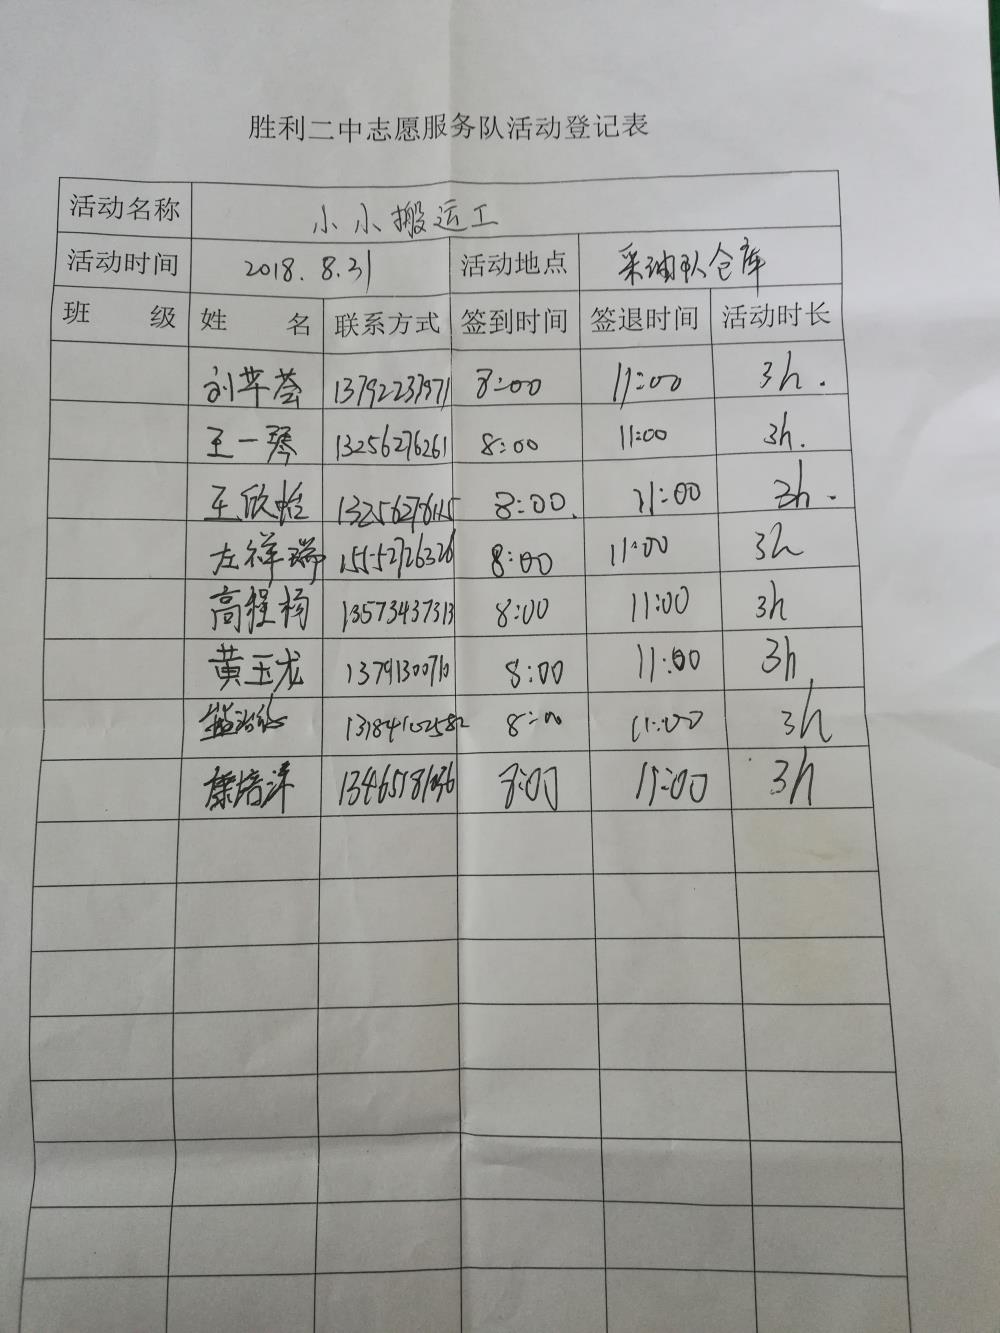 胜利二中志愿服务队活动登记表
活动名称 小小搬运工
活动时间 2018.8.31 活动地点 采油队仓库
班 级 姓 名 联系方式 签到时间 签退时间 活动时长
刘芊荟 13792237971 8:00 11:00 3h.
王一琴 13256276261 8:00 11:00 3h.
王欣怡 8:00. 11:00 3h.
左祥瑞 15552726326 8:00 11:00 3h
高程杨 13573437313 8:00 11:00 3h
黄玉龙 8:00 11:00 3h
13184102582 8:00 11:00 3h
康培沣 8:00 11:00 3h